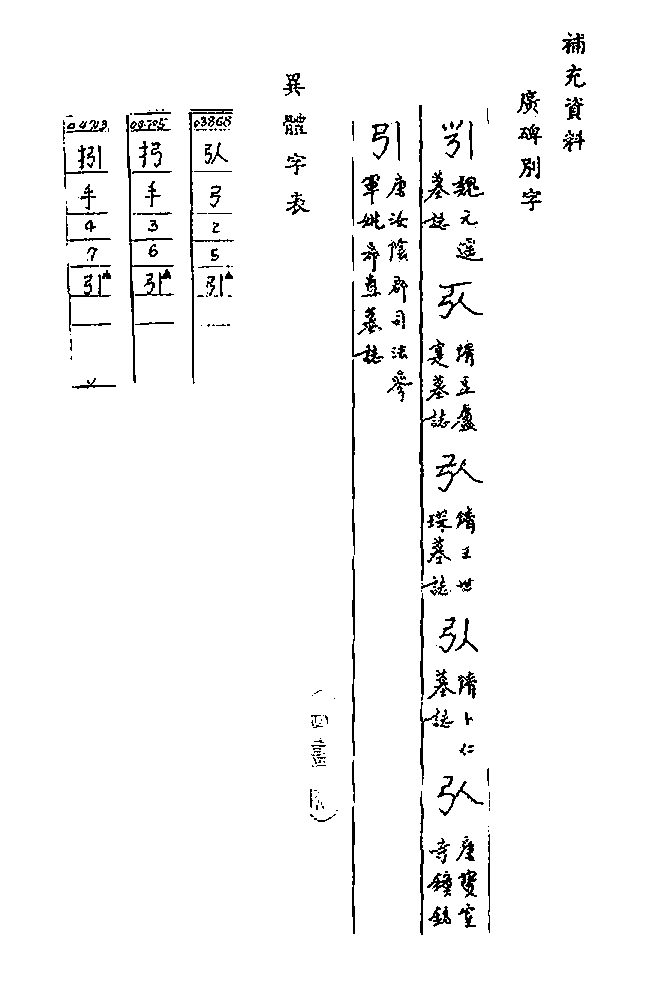 補充資料
廣碑別字
引 魏元遥墓誌
弘 隋豆盧寔墓誌
弘 隋王世琛墓誌
弘 隋卜仁墓誌
弘 唐寶室寺鐘銘
引 唐汝陰郡司法參軍姚希直墓誌
（四畫
異體字表
03868
弘
弓
2
5
引▲
08705
扝
手
3
6
引▲
04703
捪
手
4
7
引▲